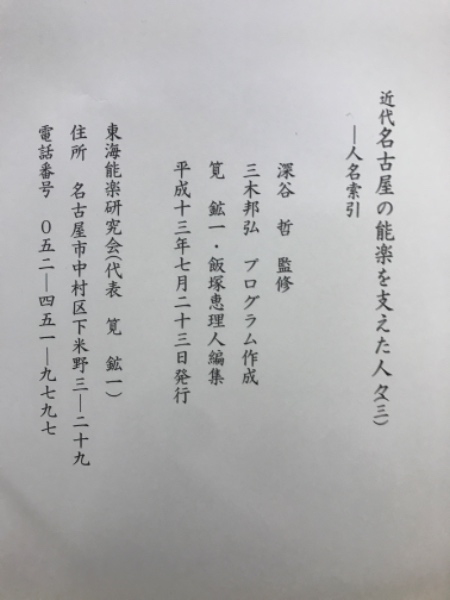 近代名古屋の能楽を支えた人々(三)
―人名索引
深谷 哲 監修
三木邦弘 プログラム作成
筧 鉱一・飯塚恵理人編集
平成十三年七月二十三日発行
東海能楽研究会(代表 筧 鉱一)
住所 名古屋市中村区下米野三―二十九
電話番号 〇五二―四五一―九七九七